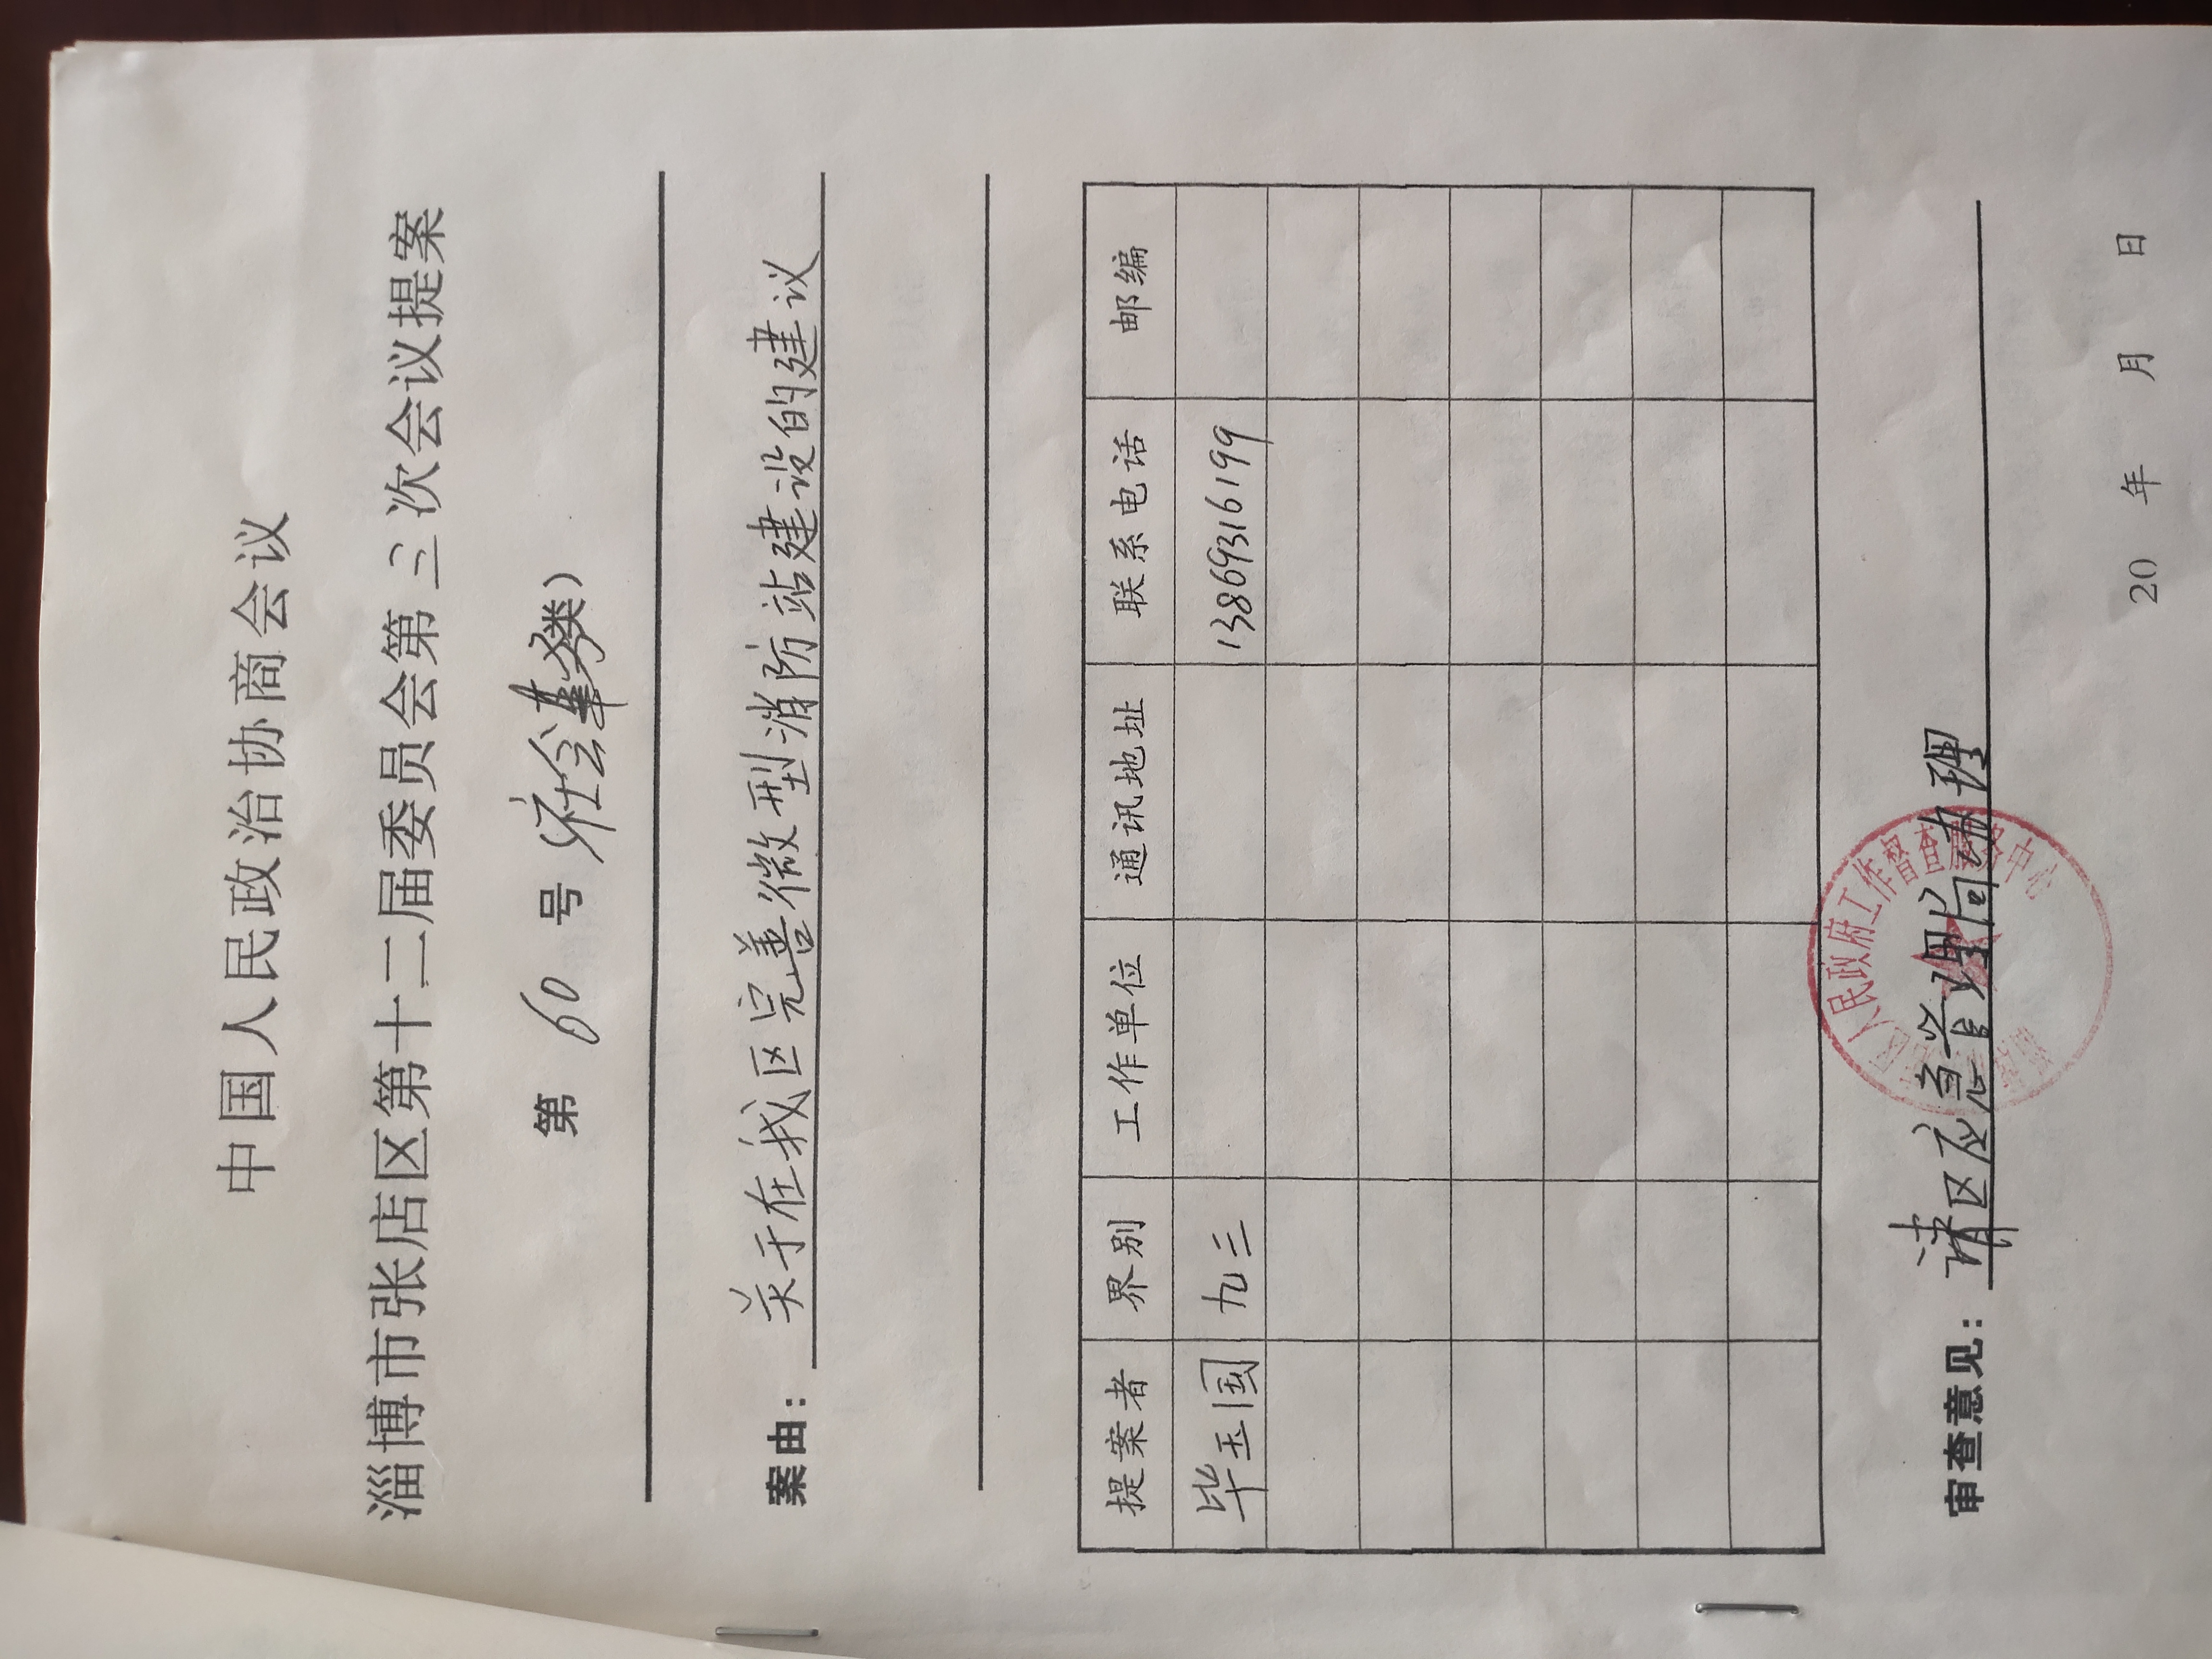 中国人民政治协商会议
淄博市张店区第十二届委员会第三次会议提案
第 60 号 (社会事务类)
案由: 关于在我区完善微型消防站建设的建议
提案者 界别 工作单位 通讯地址 联系电话 邮编
毕玉国 九三 13869316199
审查意见: 请区应急管理局办理
人民政府工作督查服务中心
20 年 月 日